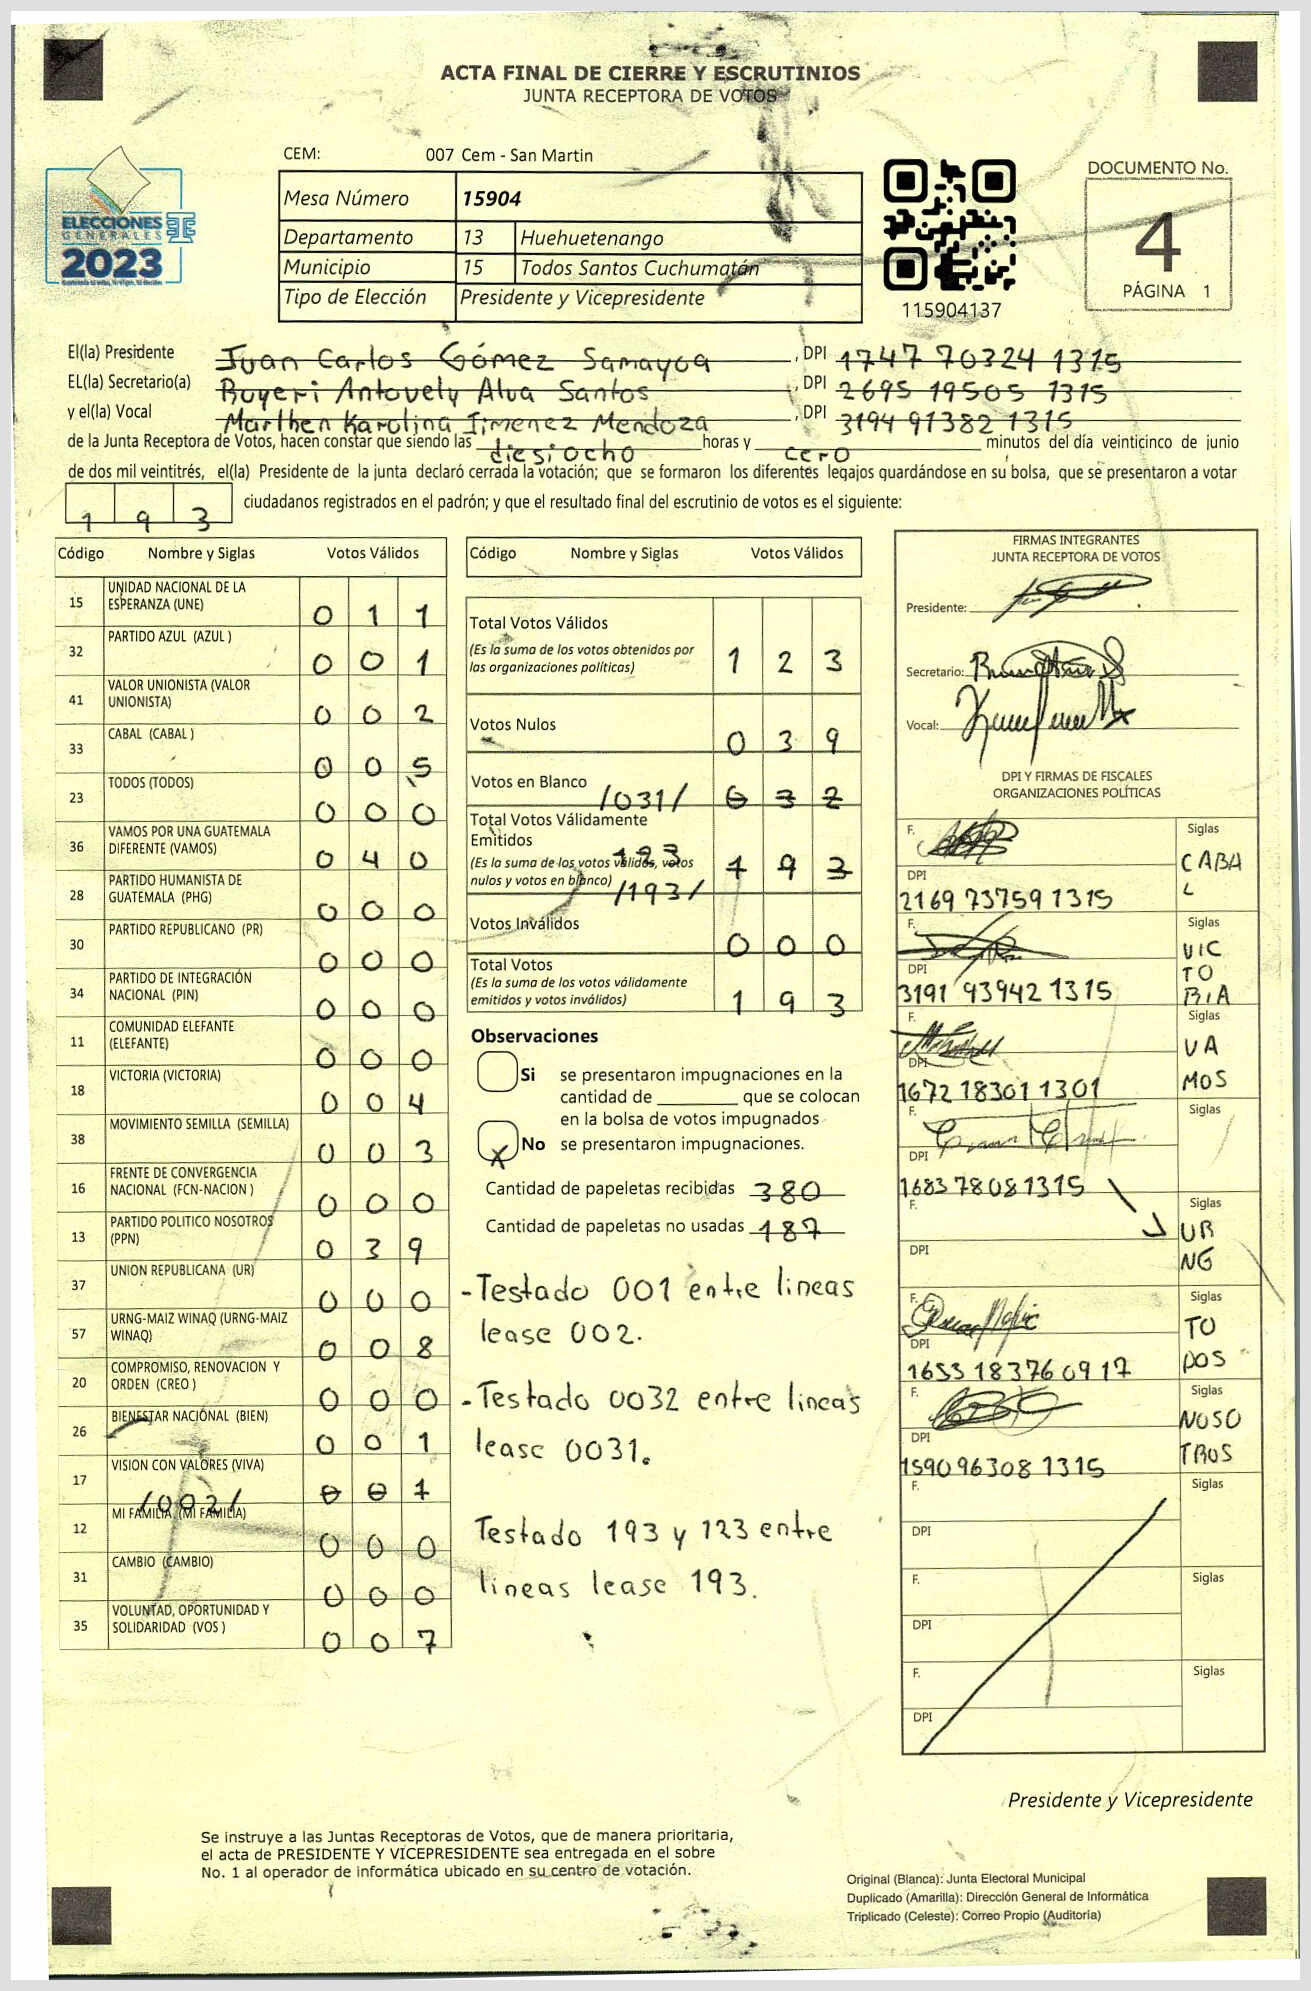 ACTA FINAL DE CIERRE Y ESCRUTINIOS
JUNTA RECEPTORA DE VOTOS
CEM: 007 Cem - San Martin
ELECCIONES
GENERALES
2023
Mesa Número 15904
Departamento 13 Huehuetenango
Municipio 15 Todos Santos Cuchumatán
Tipo de Elección Presidente y Vicepresidente
115904137
DOCUMENTO No.
4
PÁGINA 1
El(la) Presidente Juan Carlos Gómez Samayoa , DPI 1747 70324 1315
EL(la) Secretario(a) Royeri Antovely Alva Santos , DPI 2695 19505 1315
y el(la) Vocal Marlhen Karolina Jimenez Mendoza , DPI 3194 91382 1315
de la Junta Receptora de Votos, hacen constar que siendo las diesiocho horas y cero minutos del día veinticinco de junio
de dos mil veintitrés, el(la) Presidente de la junta declaró cerrada la votación; que se formaron los diferentes legajos guardándose en su bolsa, que se presentaron a votar
1 9 3 ciudadanos registrados en el padrón; y que el resultado final del escrutinio de votos es el siguiente:
Código Nombre y Siglas Votos Válidos
15 UNIDAD NACIONAL DE LA ESPERANZA (UNE) 0 1 1
32 PARTIDO AZUL (AZUL ) 0 0 1
41 VALOR UNIONISTA (VALOR UNIONISTA) 0 0 2
33 CABAL (CABAL ) 0 0 5
23 TODOS (TODOS) 0 0 0
36 VAMOS POR UNA GUATEMALA DIFERENTE (VAMOS) 0 4 0
28 PARTIDO HUMANISTA DE GUATEMALA (PHG) 0 0 0
30 PARTIDO REPUBLICANO (PR) 0 0 0
34 PARTIDO DE INTEGRACIÓN NACIONAL (PIN) 0 0 0
11 COMUNIDAD ELEFANTE (ELEFANTE) 0 0 0
18 VICTORIA (VICTORIA) 0 0 4
38 MOVIMIENTO SEMILLA (SEMILLA) 0 0 3
16 FRENTE DE CONVERGENCIA NACIONAL (FCN-NACION ) 0 0 0
13 PARTIDO POLITICO NOSOTROS (PPN) 0 3 9
37 UNION REPUBLICANA (UR) 0 0 0
57 URNG-MAIZ WINAQ (URNG-MAIZ WINAQ) 0 0 8
20 COMPROMISO, RENOVACION Y ORDEN (CREO ) 0 0 0
26 BIENESTAR NACIONAL (BIEN) 0 0 1
17 VISION CON VALORES (VIVA) /002/ 0 0 1
12 MI FAMILIA (MI FAMILIA) 0 0 0
31 CAMBIO (CAMBIO) 0 0 0
35 VOLUNTAD, OPORTUNIDAD Y SOLIDARIDAD (VOS ) 0 0 7
Código Nombre y Siglas Votos Válidos
Total Votos Válidos
(Es la suma de los votos obtenidos por
las organizaciones políticas) 1 2 3
Votos Nulos 0 3 9
Votos en Blanco /031/ 0 3 2
Total Votos Válidamente
Emitidos 123
(Es la suma de los votos válidos, votos
nulos y votos en blanco) /193/ 1 9 3
Votos Inválidos 0 0 0
Total Votos
(Es la suma de los votos válidamente
emitidos y votos inválidos) 1 9 3
Observaciones
Si se presentaron impugnaciones en la
cantidad de ________ que se colocan
en la bolsa de votos impugnados
X No se presentaron impugnaciones.
Cantidad de papeletas recibidas 380
Cantidad de papeletas no usadas 187
- Testado 001 entre lineas
lease 002.
- Testado 0032 entre lineas
lease 0031.
Testado 193 y 123 entre
lineas lease 193.
FIRMAS INTEGRANTES
JUNTA RECEPTORA DE VOTOS
Presidente:
Secretario:
Vocal:
DPI Y FIRMAS DE FISCALES
ORGANIZACIONES POLÍTICAS
F. Siglas
CABA
L
DPI
2169 73759 1315
F. Siglas
VIC
TO
RIA
DPI
3191 93942 1315
F. Siglas
VA
MOS
DPI
1672 18301 1301
F. Siglas
DPI
1683 78081315
F. Siglas
UR
NG
DPI
F. Siglas
TO
DOS
DPI
1653 18376 0917
F. Siglas
NOSO
TROS
DPI
1590 96308 1315
F. Siglas
DPI
F. Siglas
DPI
F. Siglas
DPI
Presidente y Vicepresidente
Se instruye a las Juntas Receptoras de Votos, que de manera prioritaria,
el acta de PRESIDENTE Y VICEPRESIDENTE sea entregada en el sobre
No. 1 al operador de informática ubicado en su centro de votación.
Original (Blanca): Junta Electoral Municipal
Duplicado (Amarilla): Dirección General de Informática
Triplicado (Celeste): Correo Propio (Auditoría)